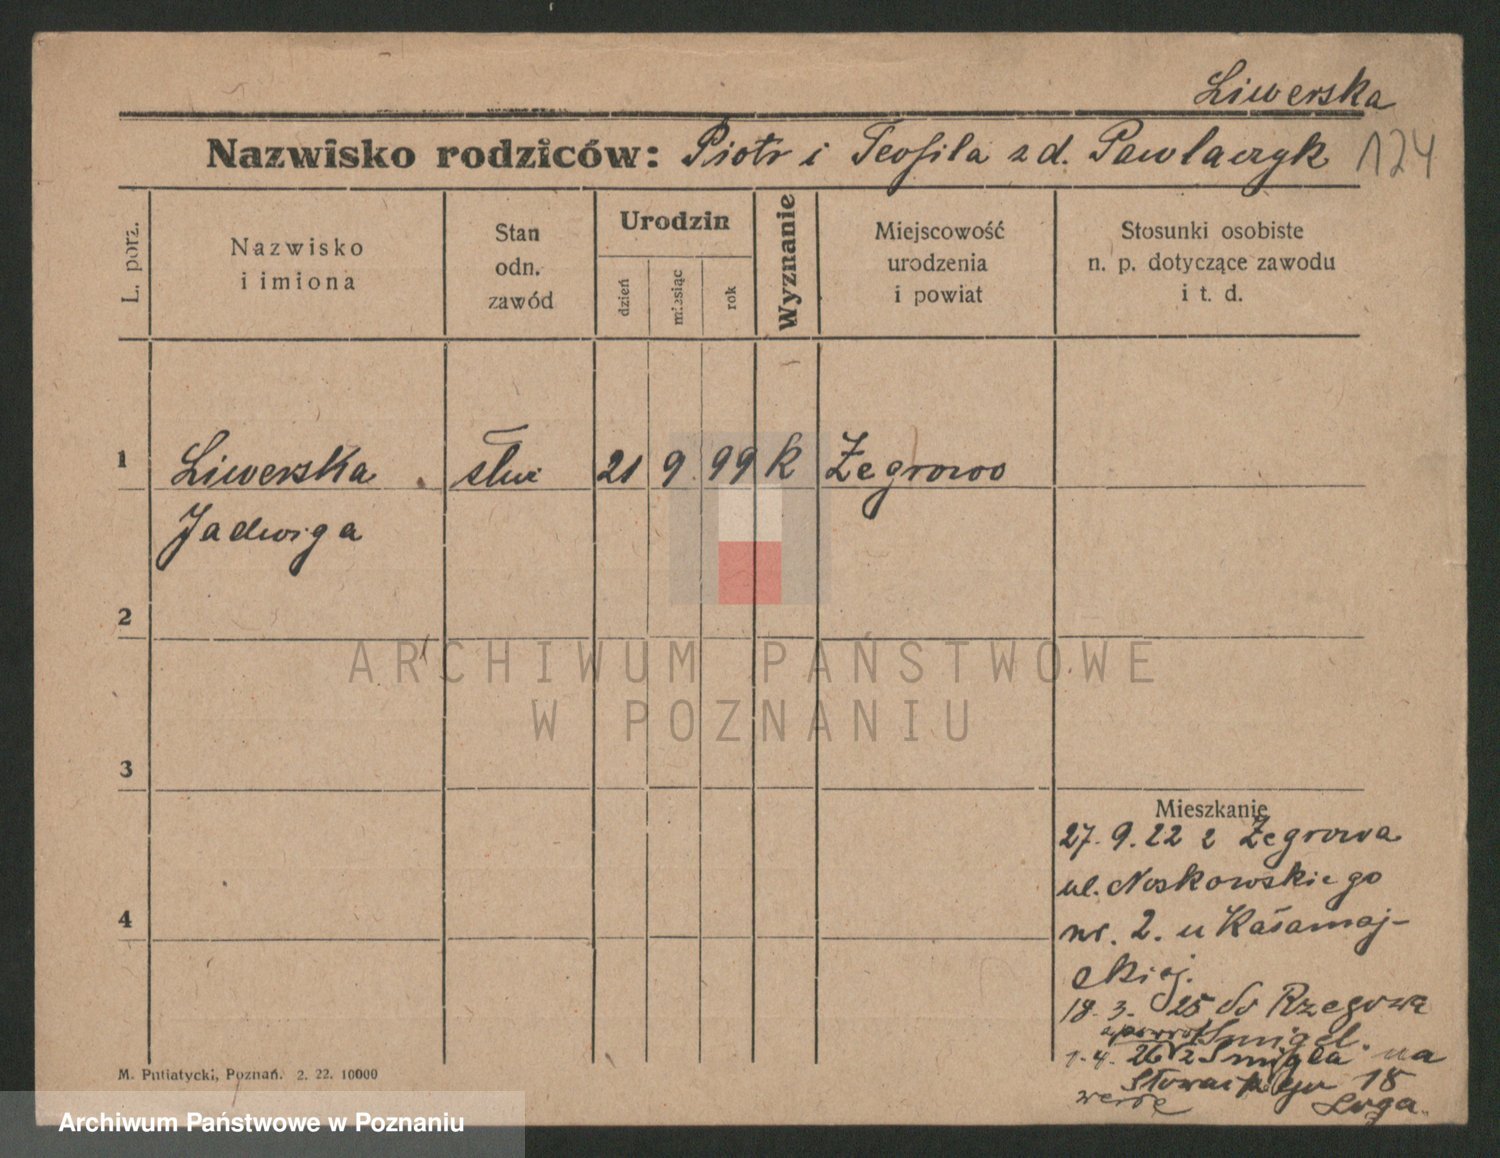 Liwerska
Nazwisko rodziców: Piotr i Teofila z d. Pawlaczyk 124
L. porz.
Nazwisko i imiona
Stan odn. zawód
Urodzin
dzień
miesiąc
rok
Wyznanie
Miejscowość urodzenia i powiat
Stosunki osobiste n. p. dotyczące zawodu i t. d.
1 Liwerska służ 21 9 99 k Żegrowo
Jadwiga
2
ARCHIWUM PAŃSTWOWE
W POZNANIU
3
Mieszkanie
27. 9. 22 z Żegrowa
ul. Noskowskiego
4
nr. 2. u Kasamaj-
skiej.
18. 3. 25 do
Śmigel.
1. 4. 26 z Śmigla na
18
M. Putiatycki, Poznań. 2. 22. 10000
Archiwum Państwowe w Poznaniu